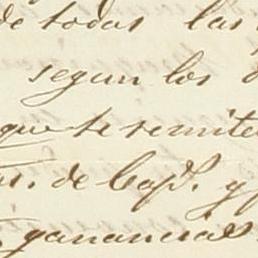 de todas las
segun los
que te remite
de Cap.
ganancias